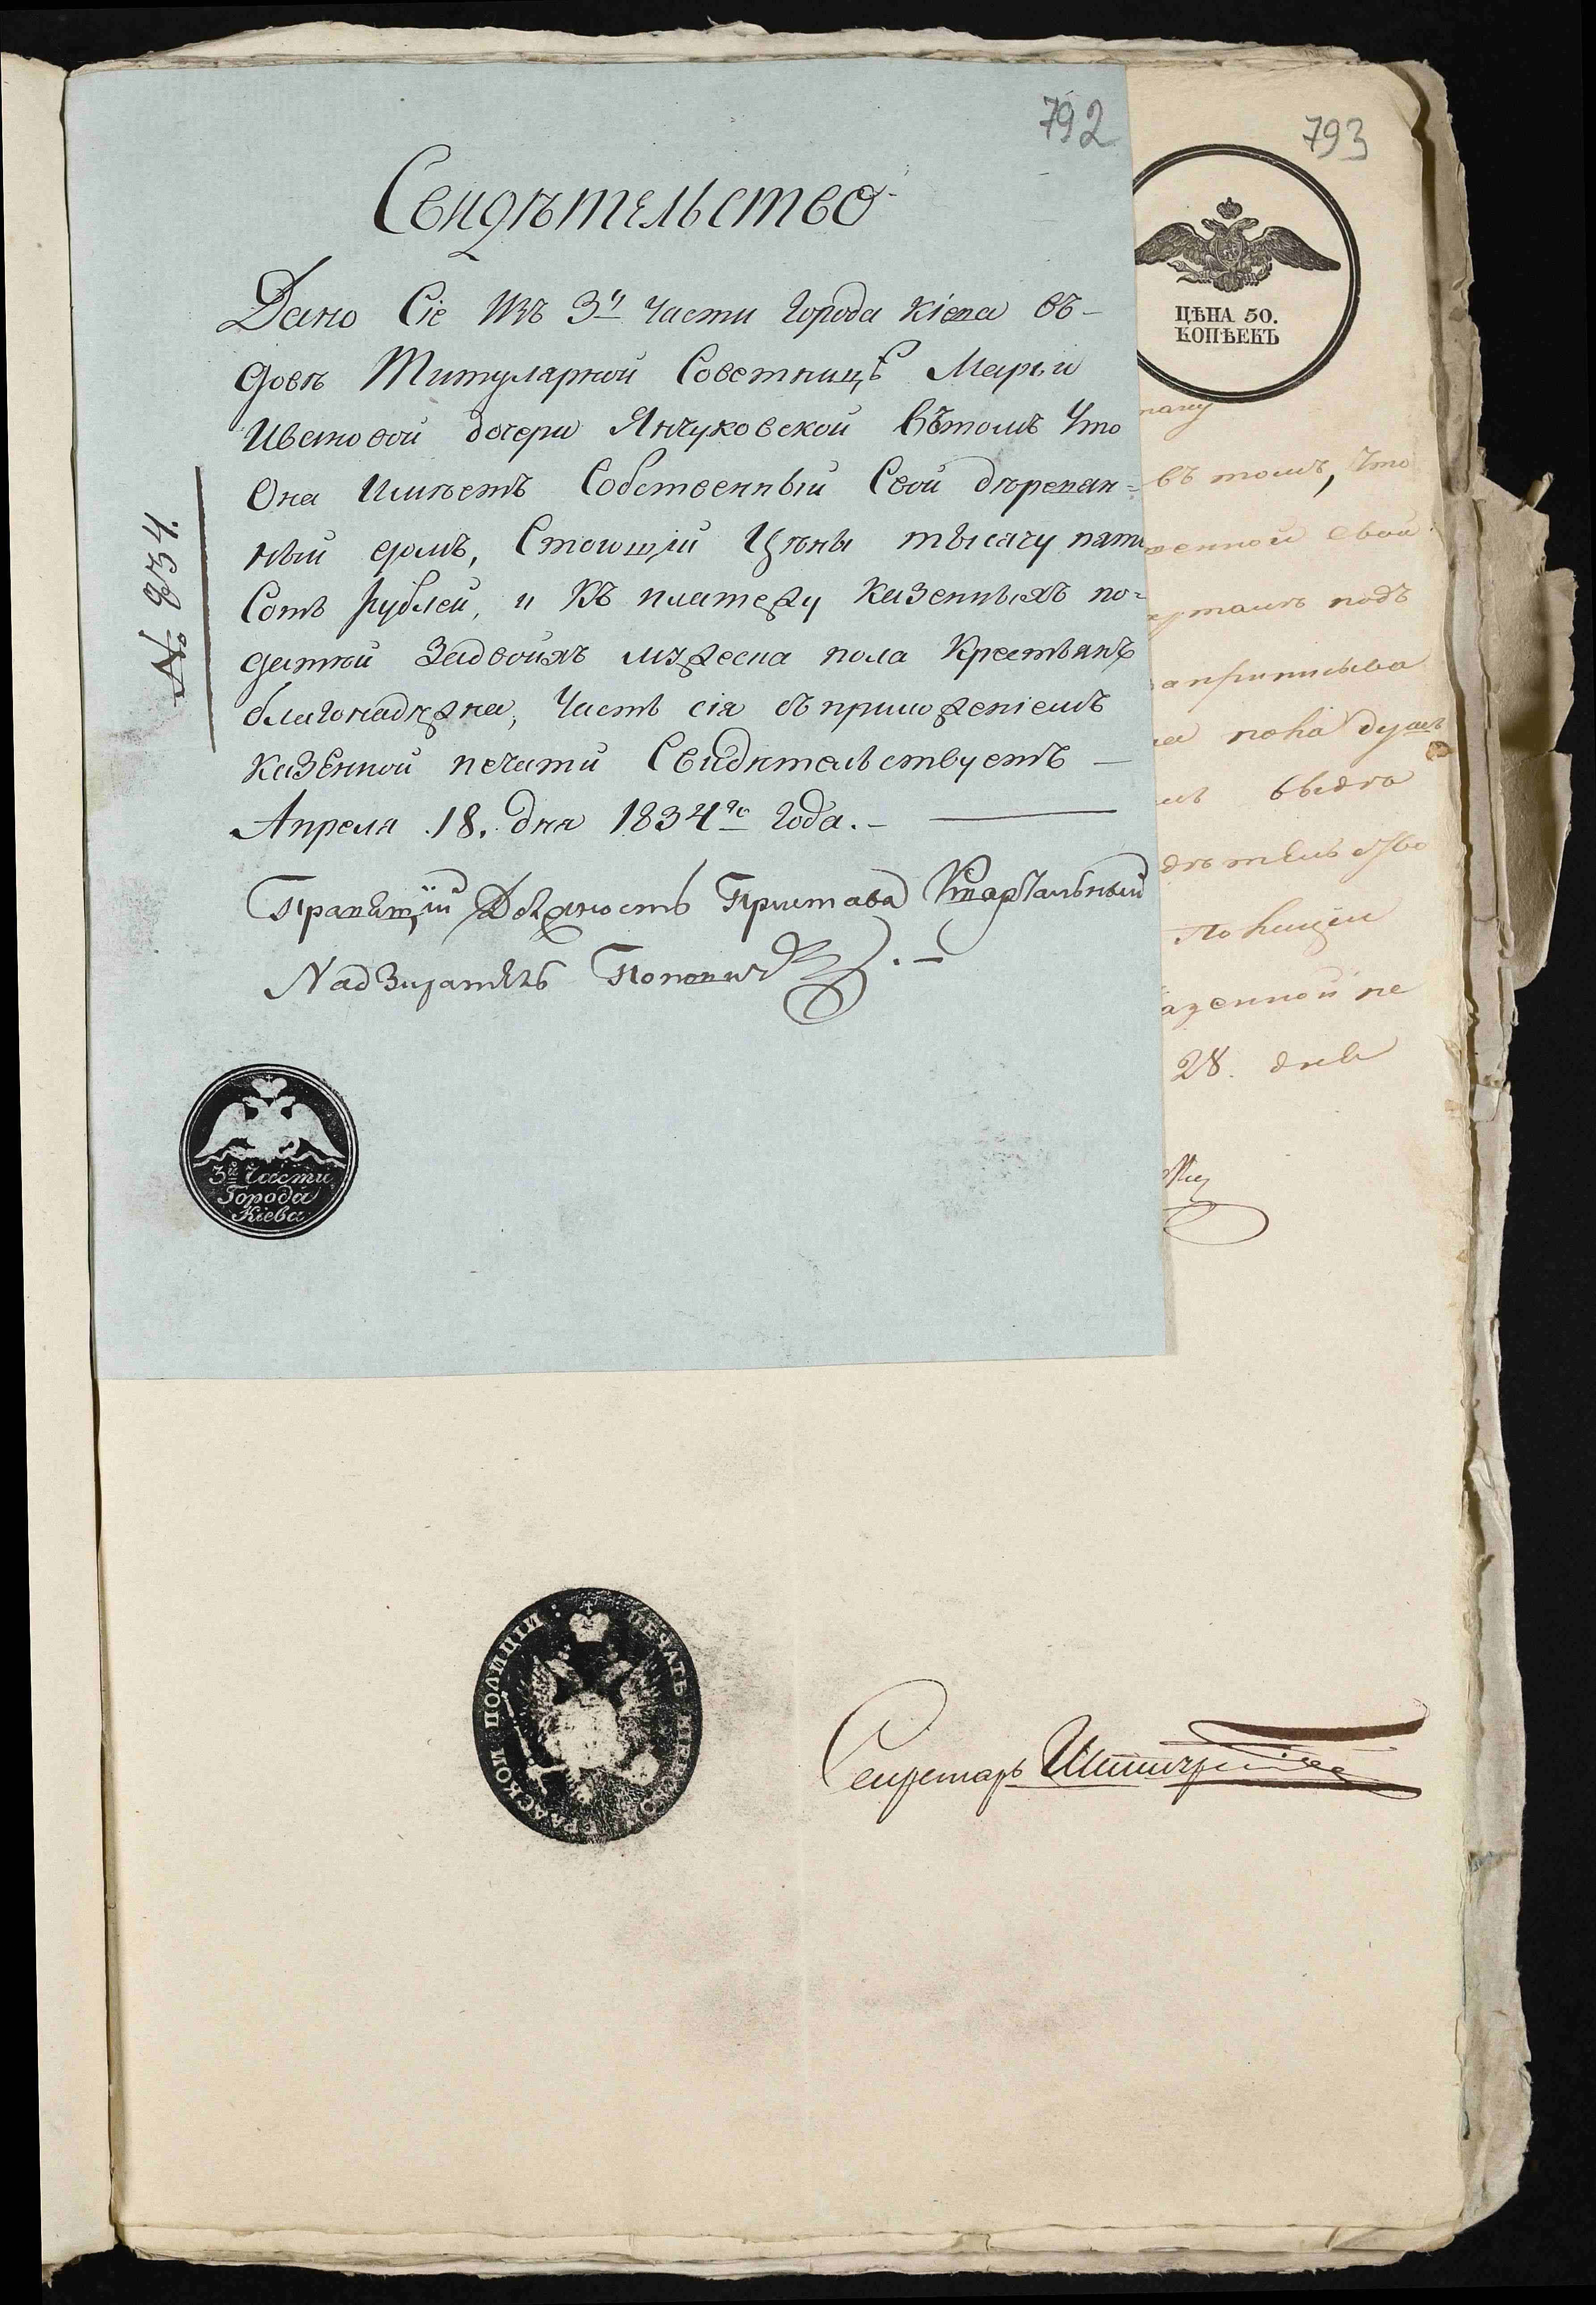 792
Свидѣтельство
Дано Сіе Изъ 3й Части Города Кіева въ-
довѣ Титулярной Советницѣ Марьи
Ивановой дочери Янчуковской вътомъ Что
Она Имѣетъ Собственный Свой дѣревян=
ный домъ, Стоющій Цѣны тысячу пять
Сотъ рублей, и Къ платежу Казенныхъ по-
датей Задвоихъ мужеска пола Крестьянъ
благонадѣжна, Часть сія съ приложеніемъ
Казенной печати Свидѣтельствуетъ —
Апреля 18. дня 1834го Года. —
Правящій Должность Пристава Квартальный
Надзиратель
№ 834.
3й Части
Города
Кіева
793
ЦѢНА 50.
КОПѢЕКЪ
въ томъ, Что
свой
подъ
приписыва
пола душъ
Полиціи
28. дня
ПЕЧАТЬ КІЕВСКОЙ ГРАДСКОЙ ПОЛИЦІИ
Секретарь